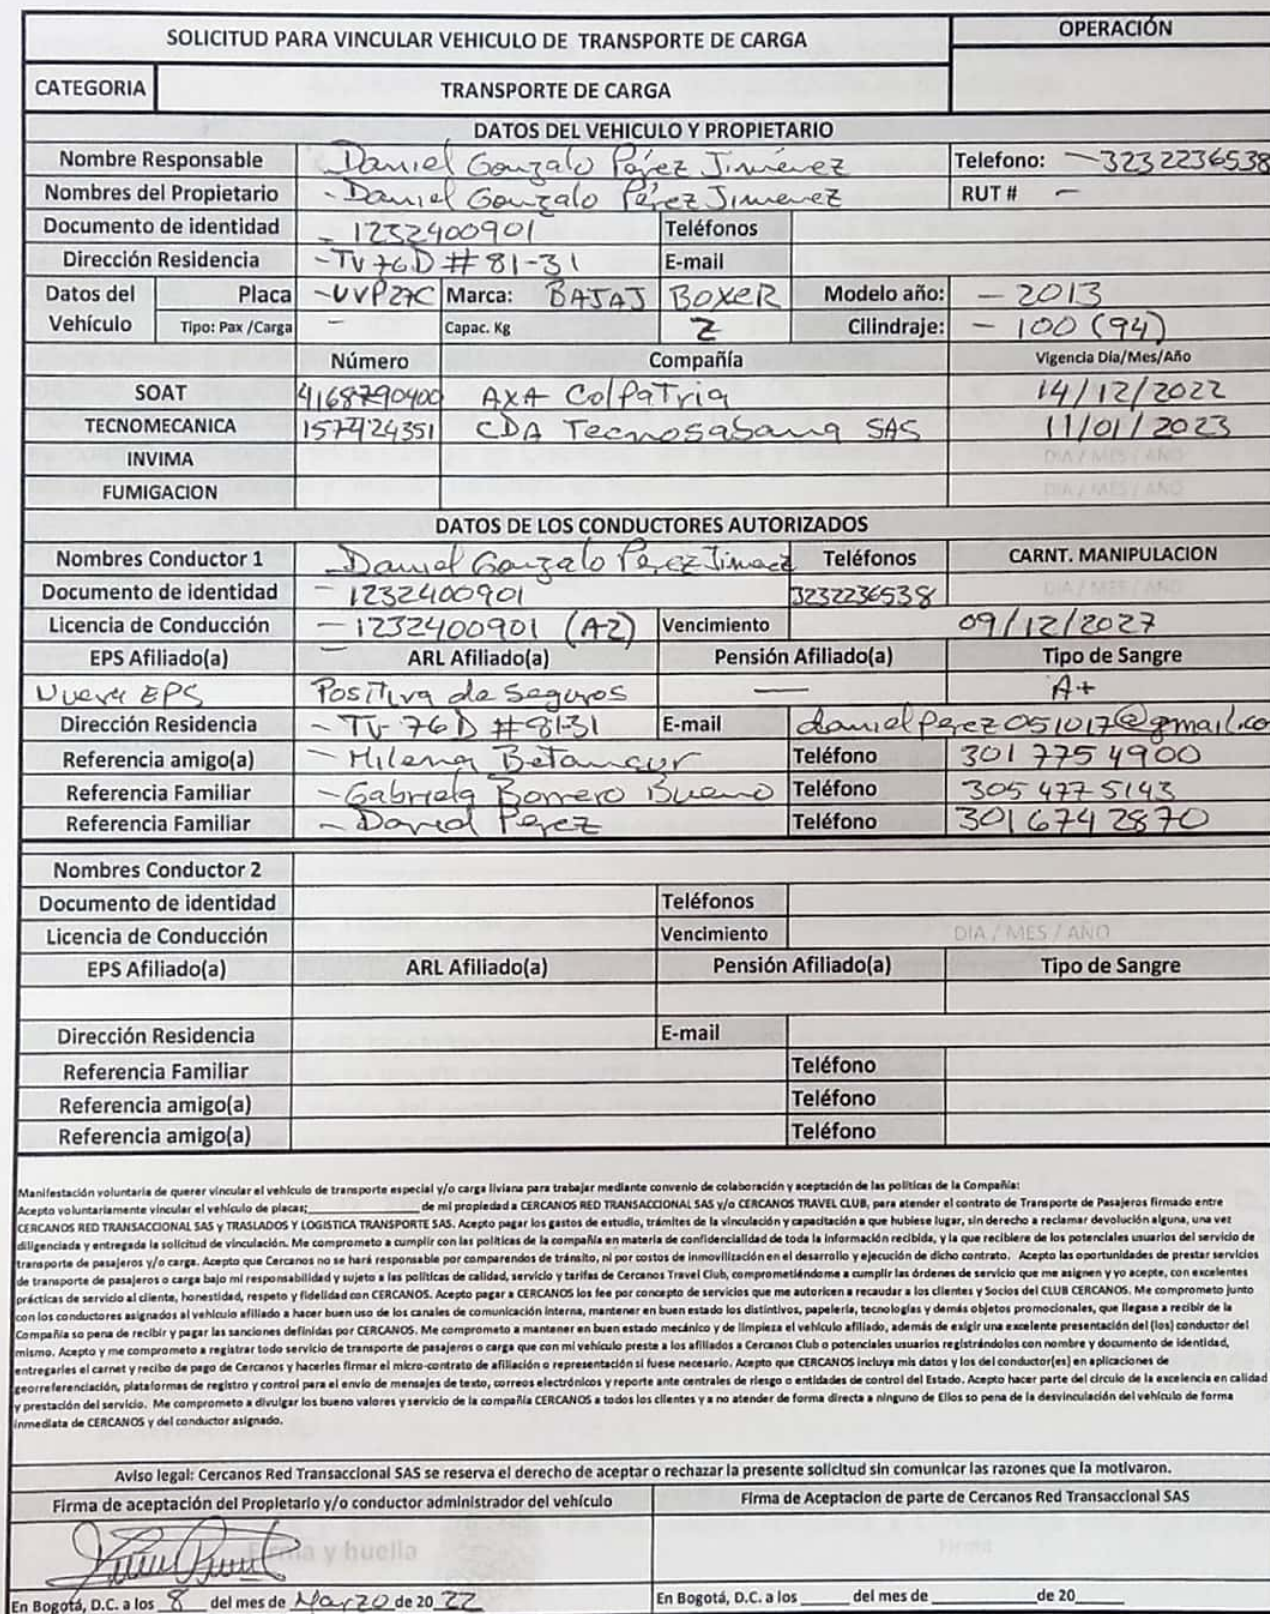 SOLICITUD PARA VINCULAR VEHICULO DE TRANSPORTE DE CARGA
OPERACIÓN
CATEGORIA TRANSPORTE DE CARGA
DATOS DEL VEHICULO Y PROPIETARIO
Nombre Responsable Daniel Gonzalo Pérez Jiménez Telefono: -3232236538
Nombres del Propietario - Daniel Gonzalo Pérez Jimenez RUT # -
Documento de identidad - 1232400901 Teléfonos
Dirección Residencia - TV 76D # 81-31 E-mail
Datos del Vehículo Placa -UVP27C Marca: BAJAJ BOXER Modelo año: - 2013
Tipo: Pax /Carga - Capac. Kg 2 Cilindraje: - 100 (94)
Número Compañía Vigencia Dia/Mes/Año
SOAT 4168790400 AXA Colpatria 14/12/2022
TECNOMECANICA 157424351 CDA Tecnosabana SAS 11/01/2023
INVIMA DIA / MES / AÑO
FUMIGACION DIA / MES / AÑO
DATOS DE LOS CONDUCTORES AUTORIZADOS
Nombres Conductor 1 Daniel Gonzalo Perez Teléfonos CARNT. MANIPULACION
Documento de identidad - 1232400901 3232236538 DIA / MES / AÑO
Licencia de Conducción - 1232400901 (A2) Vencimiento 09/12/2027
EPS Afiliado(a) ARL Afiliado(a) Pensión Afiliado(a) Tipo de Sangre
Nueva EPS Positiva de Seguros — A+
Dirección Residencia - TV 76D #81-31 E-mail danielperez051017@gmail.co
Referencia amigo(a) - Milena Betancur Teléfono 301 775 4900
Referencia Familiar - Gabriela Borrero Bueno Teléfono 305 477 5143
Referencia Familiar - David Perez Teléfono 301 674 2870
Nombres Conductor 2
Documento de identidad Teléfonos
Licencia de Conducción Vencimiento DIA / MES / AÑO
EPS Afiliado(a) ARL Afiliado(a) Pensión Afiliado(a) Tipo de Sangre
Dirección Residencia E-mail
Referencia Familiar Teléfono
Referencia amigo(a) Teléfono
Referencia amigo(a) Teléfono
Manifestación voluntaria de querer vincular el vehículo de transporte especial y/o carga liviana para trabajar mediante convenio de colaboración y aceptación de las políticas de la Compañía:
Acepto voluntariamente vincular el vehículo de placas;____________ de mi propiedad a CERCANOS RED TRANSACCIONAL SAS y/o CERCANOS TRAVEL CLUB, para atender el contrato de Transporte de Pasajeros firmado entre
CERCANOS RED TRANSACCIONAL SAS y TRASLADOS Y LOGISTICA TRANSPORTE SAS. Acepto pagar los gastos de estudio, trámites de la vinculación y capacitación a que hubiese lugar, sin derecho a reclamar devolución alguna, una vez
diligenciada y entregada la solicitud de vinculación. Me comprometo a cumplir con las políticas de la compañía en materia de confidencialidad de toda la información recibida, y la que recibiere de los potenciales usuarios del servicio de
transporte de pasajeros y/o carga. Acepto que Cercanos no se hará responsable por comparendos de tránsito, ni por costos de inmovilización en el desarrollo y ejecución de dicho contrato. Acepto las oportunidades de prestar servicios
de transporte de pasajeros o carga bajo mi responsabilidad y sujeto a las políticas de calidad, servicio y tarifas de Cercanos Travel Club, comprometiéndome a cumplir las órdenes de servicio que me asignen y yo acepte, con excelentes
prácticas de servicio al cliente, honestidad, respeto y fidelidad con CERCANOS. Acepto pagar a CERCANOS los fee por concepto de servicios que me autoricen a recaudar a los clientes y Socios del CLUB CERCANOS. Me comprometo junto
con los conductores asignados al vehículo afiliado a hacer buen uso de los canales de comunicación interna, mantener en buen estado los distintivos, papelería, tecnologías y demás objetos promocionales, que llegase a recibir de la
Compañía so pena de recibir y pagar las sanciones definidas por CERCANOS. Me comprometo a mantener en buen estado mecánico y de limpieza el vehículo afiliado, además de exigir una excelente presentación del (los) conductor del
mismo. Acepto y me comprometo a registrar todo servicio de transporte de pasajeros o carga que con mi vehículo preste a los afiliados a Cercanos Club o potenciales usuarios registrándolos con nombre y documento de identidad,
entregarles el carnet y recibo de pago de Cercanos y hacerles firmar el micro-contrato de afiliación o representación si fuese necesario. Acepto que CERCANOS incluya mis datos y los del conductor(es) en aplicaciones de
georreferenciación, plataformas de registro y control para el envío de mensajes de texto, correos electrónicos y reporte ante centrales de riesgo o entidades de control del Estado. Acepto hacer parte del circulo de la excelencia en calidad
y prestación del servicio. Me comprometo a divulgar los bueno valores y servicio de la compañía CERCANOS a todos los clientes y a no atender de forma directa a ninguno de Ellos so pena de la desvinculación del vehículo de forma
inmediata de CERCANOS y del conductor asignado.
Aviso legal: Cercanos Red Transaccional SAS se reserva el derecho de aceptar o rechazar la presente solicitud sin comunicar las razones que la motivaron.
Firma de aceptación del Propietario y/o conductor administrador del vehículo Firma de Aceptacion de parte de Cercanos Red Transaccional SAS
Firma y huella Firma
En Bogotá, D.C. a los 8 del mes de Marzo de 20 22 En Bogotá, D.C. a los _____ del mes de _________ de 20_____